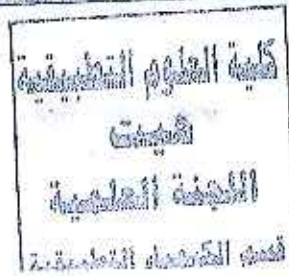 كلية العلوم التطبيقية
هيت
اللجنة العلمية
قسم الكيمياء التطبيقية